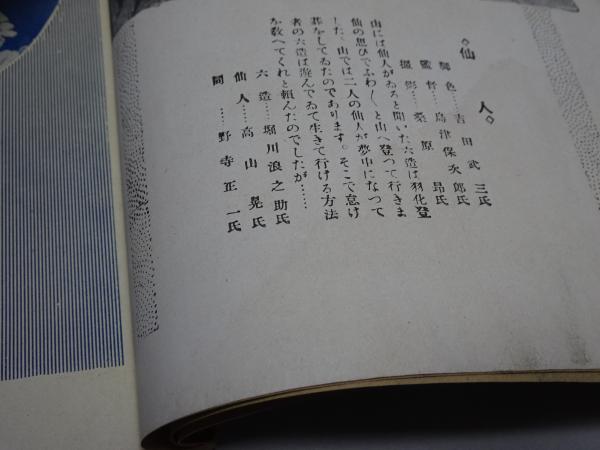 ◇仙人◇
脚色……吉田武三氏
監督……島津保次郎氏
撮影……桑原昂氏
山には仙人がゐると聞いた六造は羽化登
仙の思ひでふわ〱と山へ登つて行きま
した、山では二人の仙人が夢中になつて
碁をしてゐたのであります。そこで怠け
者の六造は遊んでゐて生きて行ける方法
を敎へてくれと頼んだのでしたが……
六造……堀川浪之助氏
仙人……高山晃氏
同……野寺正一氏